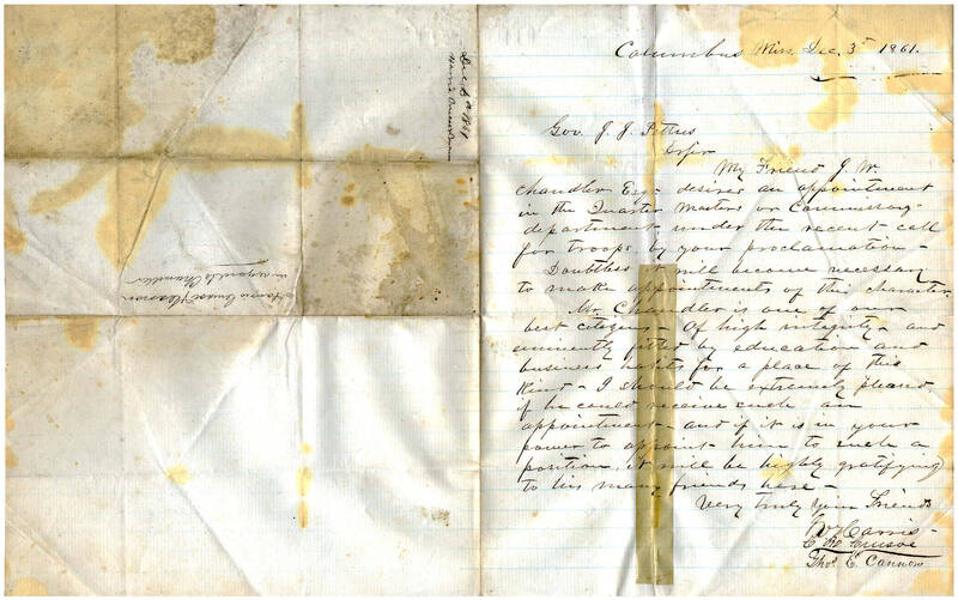 Columbus Miss. Dec. 3rd 1861.
Gov. J. J. Pettus
My Friend J. W.
Chandler Esq. desires an appointment
in the Quarter Masters or Commissary
department under the recent call
for troops by your proclamation -
Doubtless it will become necessary
to make appointments of this character.
Mr. Chandler is one of our
best citizens - Of high integrity - and
eminently fitted by education and
business habits for a place of this
kind - I should be extremely pleased
if he could receive such an
appointment - and if it is in your
power to appoint him to such a
position, it will be highly gratifying
to his many friends here -
Very truly Your Friends
Harris
Thos. C. Cannon
Dec 3d 1861
in regard to Chandler